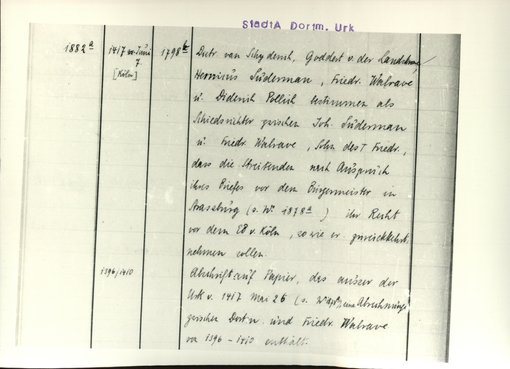 StadtA Dortm. Urk
1882a 1417 vor Juni 1798b Detr. van Schydemb, Goddert v. der
7 Herminis Suderman, Friedr. Walrave
[Köln] u. Diderich Pollich bestimmen als
Schiedsrichter zwischen Joh. Suderman
u. Friedr. Walrave, Sohn des † Friedr.,
dass die Streitenden nach Ausspruch
ihres Briefes vor dem Bürgermeister in
Strassburg (s. Nr 1878a) ihr Recht
vor dem EB v. Köln, so wie er zurückkehrt,
nehmen sollen.
1396/1410 Abschrift auf Papier, das ausser der
Urk v. 1417 Mai 26 (s. Nr eine Abrechnung
zwischen Dortm. und Friedr. Walrave
von 1396 - 1410 enthält.